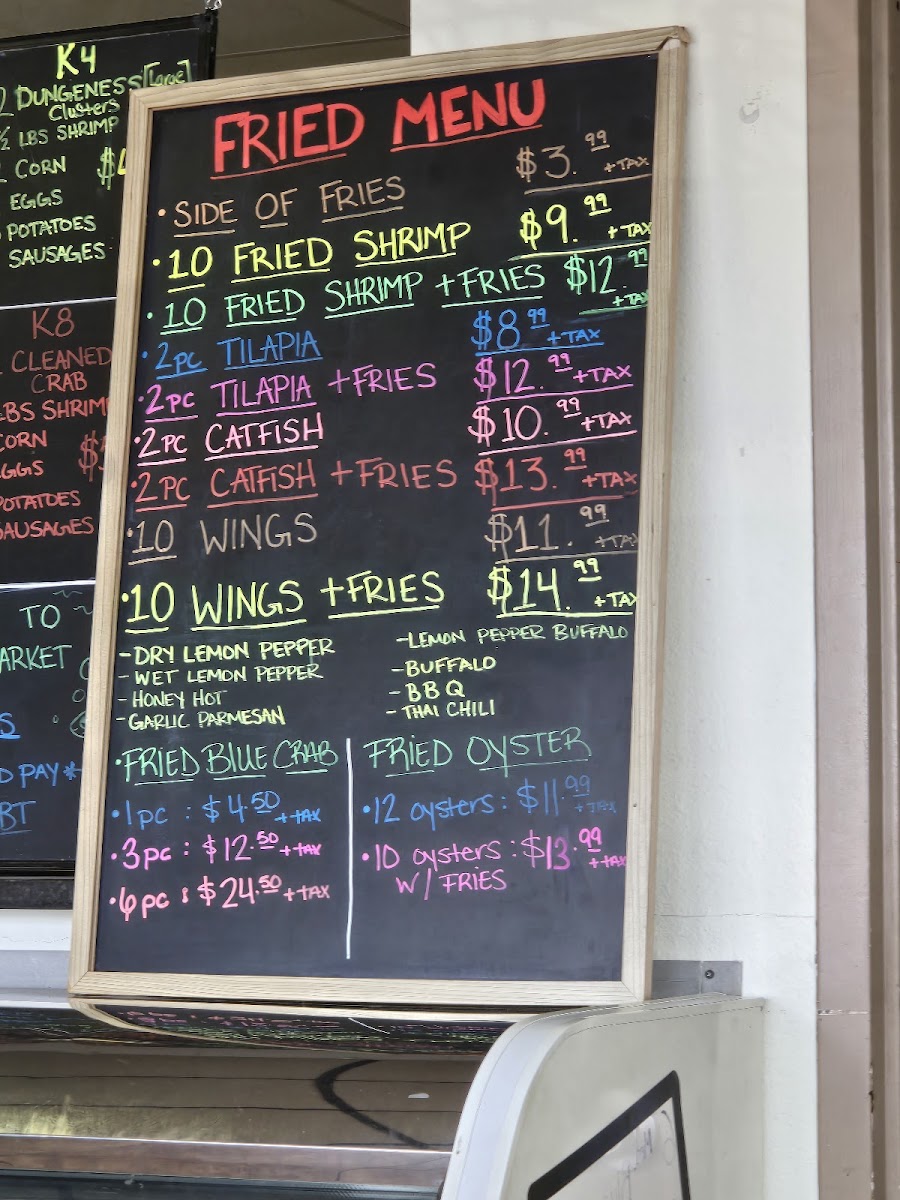 K4
DUNGENESS [large]
Clusters
½ LBS SHRIMP
CORN
EGGS
POTATOES
SAUSAGES
K8
CLEANED
CRAB
LBS SHRIMP
CORN
EGGS
POTATOES
SAUSAGES
TO
PAY*
FRIED MENU
• SIDE OF FRIES $3.99 +TAX
• 10 FRIED SHRIMP $9.99 +TAX
• 10 FRIED SHRIMP +FRIES $12.99 +TAX
• 2pc TILAPIA $8.99 +TAX
• 2pc TILAPIA +FRIES $12.99 +TAX
• 2pc CATFISH $10.99 +TAX
• 2pc CATFISH +FRIES $13.99 +TAX
• 10 WINGS $11.99 +TAX
• 10 WINGS +FRIES $14.99 +TAX
- DRY LEMON PEPPER
- WET LEMON PEPPER
- HONEY HOT
- GARLIC PARMESAN
- LEMON PEPPER BUFFALO
- BUFFALO
- BBQ
- THAI CHILI
• FRIED BLUE CRAB
• 1pc : $4.50 +TAX
• 3pc : $12.50 +TAX
• 6pc : $24.50 +TAX
FRIED OYSTER
• 12 oysters : $11.99 +TAX
• 10 oysters : $13.99 +TAX
W/ FRIES